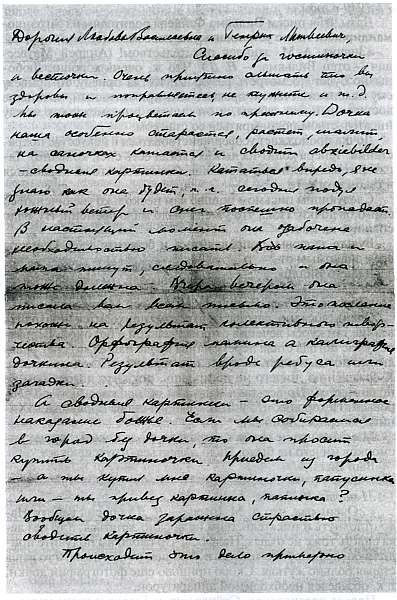 Дорогие Любовь Васильевна и Генрих Матвеевич,
Спасибо за гостиночки
и весточки. Очень приятно слышать что вы
здоровы и поправляетесь, не кужите и т.д.
Мы тоже процветаем по прежнему. Дочка
наша особенно старается, растет, шалит,
на саночках катается и сводит abziebilder
- сводная картинки. Кататься впредь, я не
знаю как она будет, т.к. сегодня подул
южный ветер и снег поспешно пропадает.
В настоящий момент она озабочена
необходимостью писать. Все папа и
мама пишут, следовательно и она
тоже должна. Вчера вечером она
писала вам всем письмо. Это послание
похоже на результат колективного творчества
Орфография мамина а калиграфия
дочкина. Результат вроде ребуса или
загадки.
А сводныя картинки - это форменное
наказание божье. Если мы собираемся
в город без дочки, то она просит
купить картиночки. Приедем из города
- а ты купил мне картиночки, папусинька
или - ты привез картинка, папочка?
Вообщем дочка заражена страстью
сводить картиночки.
Происходит это дело примерно